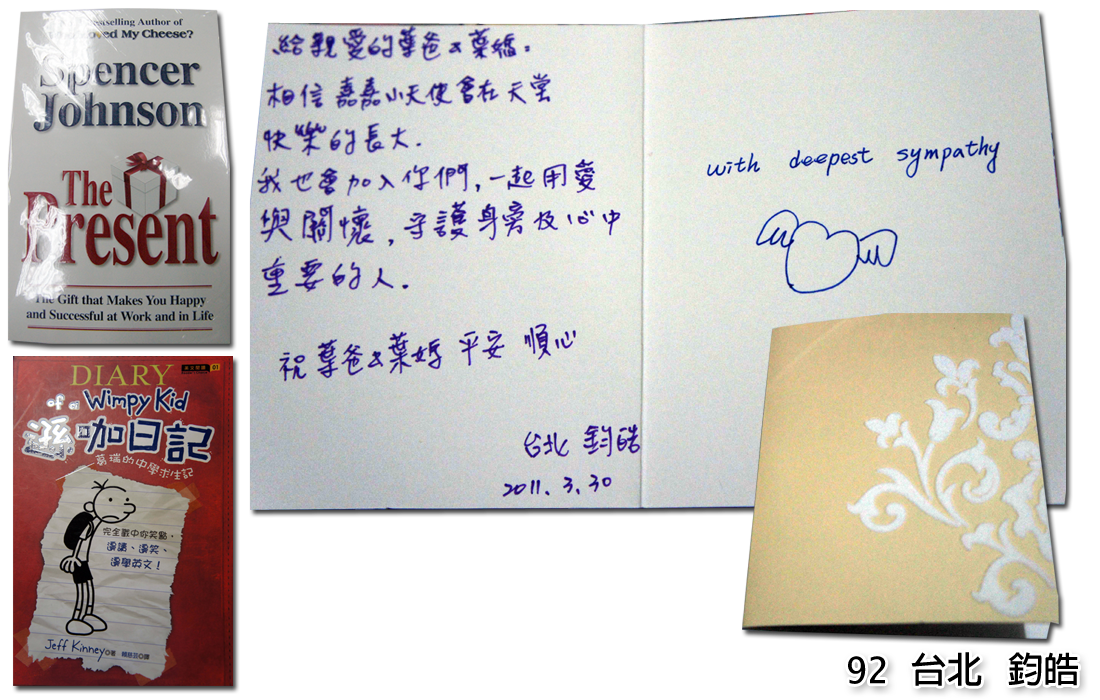 selling Author of
My Cheese?
Spencer
Johnson
The
Present
The Gift that Makes You Happy
and Successful at Work and in Life
DIARY
of a Wimpy Kid
01
咖日記
葛瑞的中學求生記
完全戳中你笑點、
邊讀、邊笑、
邊學英文！
Jeff Kinney◎著
給親愛的葉爸&葉媽：
相信嘉嘉小天使會在天堂
快樂的長大.
我也會加入你們,一起用愛
與關懷,守護身旁及心中
重要的人.
祝葉爸&葉媽 平安 順心
台北 鈞皓
2011.3.30
with deepest sympathy
92 台北 鈞皓